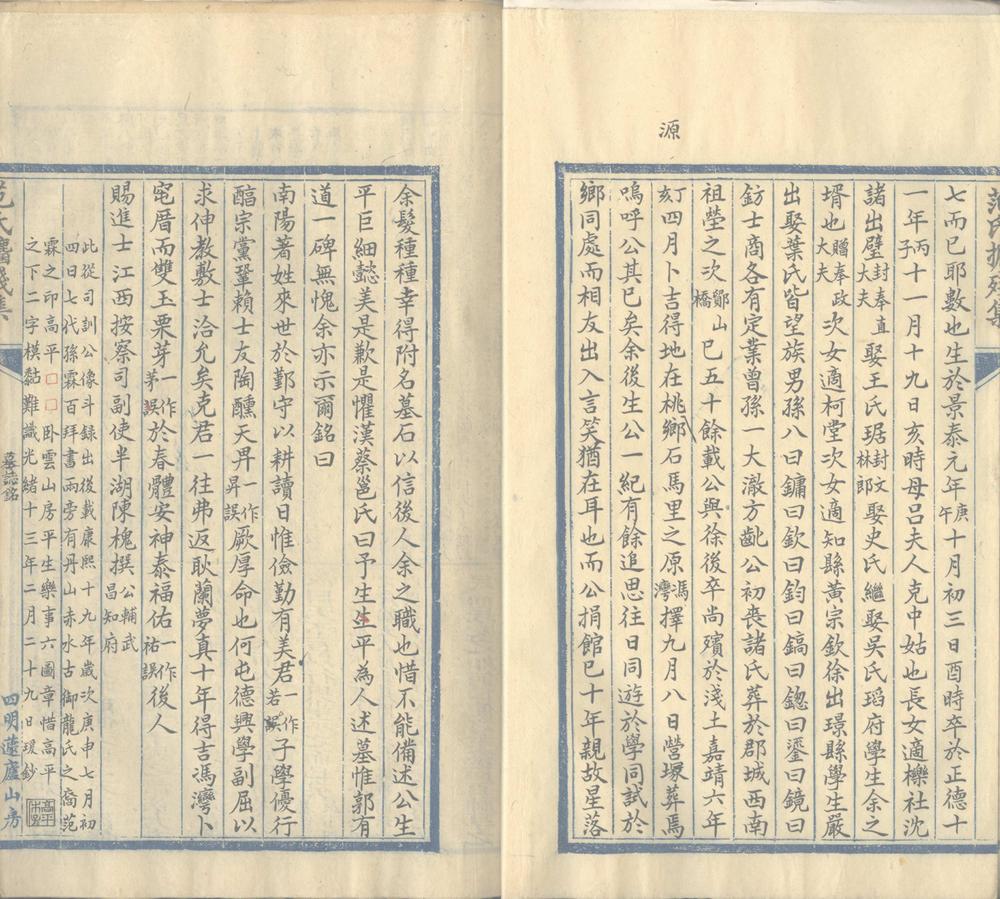 源
范氏捃殘集
七而已耶數也生於景泰元年庚午十月初三日酉時卒於正德十
一年丙子十一月十九日亥時母呂夫人克中姑也長女適櫟社沈
諸出璧封奉直大夫娶王氏琚封文林郎娶史氏繼娶吳氏瑫府學生余之
壻也贈奉政大夫次女適柯堂次女適知縣黃宗欽徐出璟縣學生嚴
出娶葉氏皆望族男孫八曰鏞曰欽曰鈞曰鎬曰鍃曰鎏曰鏡曰
鈁士商各有定業曾孫一大澈方齔公初喪諸氏葬於郡城西南
祖塋之次鄮山橋已五十餘載公與徐後卒尚殯於淺土嘉靖六年
丁亥四月卜吉得地在桃鄉石馬里之原馮灣擇九月八日營塚葬焉
嗚呼公其已矣余後生公一紀有餘追思往日同遊於學同試於
鄉同處而相友出入言笑猶在耳也而公捐館已十年親故星落
余髮種種幸得附名墓石以信後人余之職也惜不能備述公生
平巨細懿美是歉是懼漢蔡邕氏曰予生生平為人述墓惟郭有
道一碑無愧余亦示爾銘曰
南陽著姓來世於鄞守以耕讀日惟儉勤有美君一作若誤子學優行
醇宗黨鞏賴士友陶醺天畀一作昇誤厥厚命也何屯德興學副屈以
求伸教敷士洽允矣克君一往弗返耿蘭夢真十年得吉馮灣卜
窀厝而雙玉栗芽一作茅誤於春體安神泰福佑一作祐誤後人
賜進士江西按察司副使半湖陳槐撰公輔武昌知府
此從司訓公像斗錄出後載康熙十九年歲次庚申七月初
四日七代孫霖百拜書兩旁有丹山赤水古御龍氏之裔范
霖之印高平□□臥雲山房平生樂事六圖章惜高平
之下二字模黏難識光緒十三年二月二十九日瑗鈔
墓誌銘
四明蘧廬山房